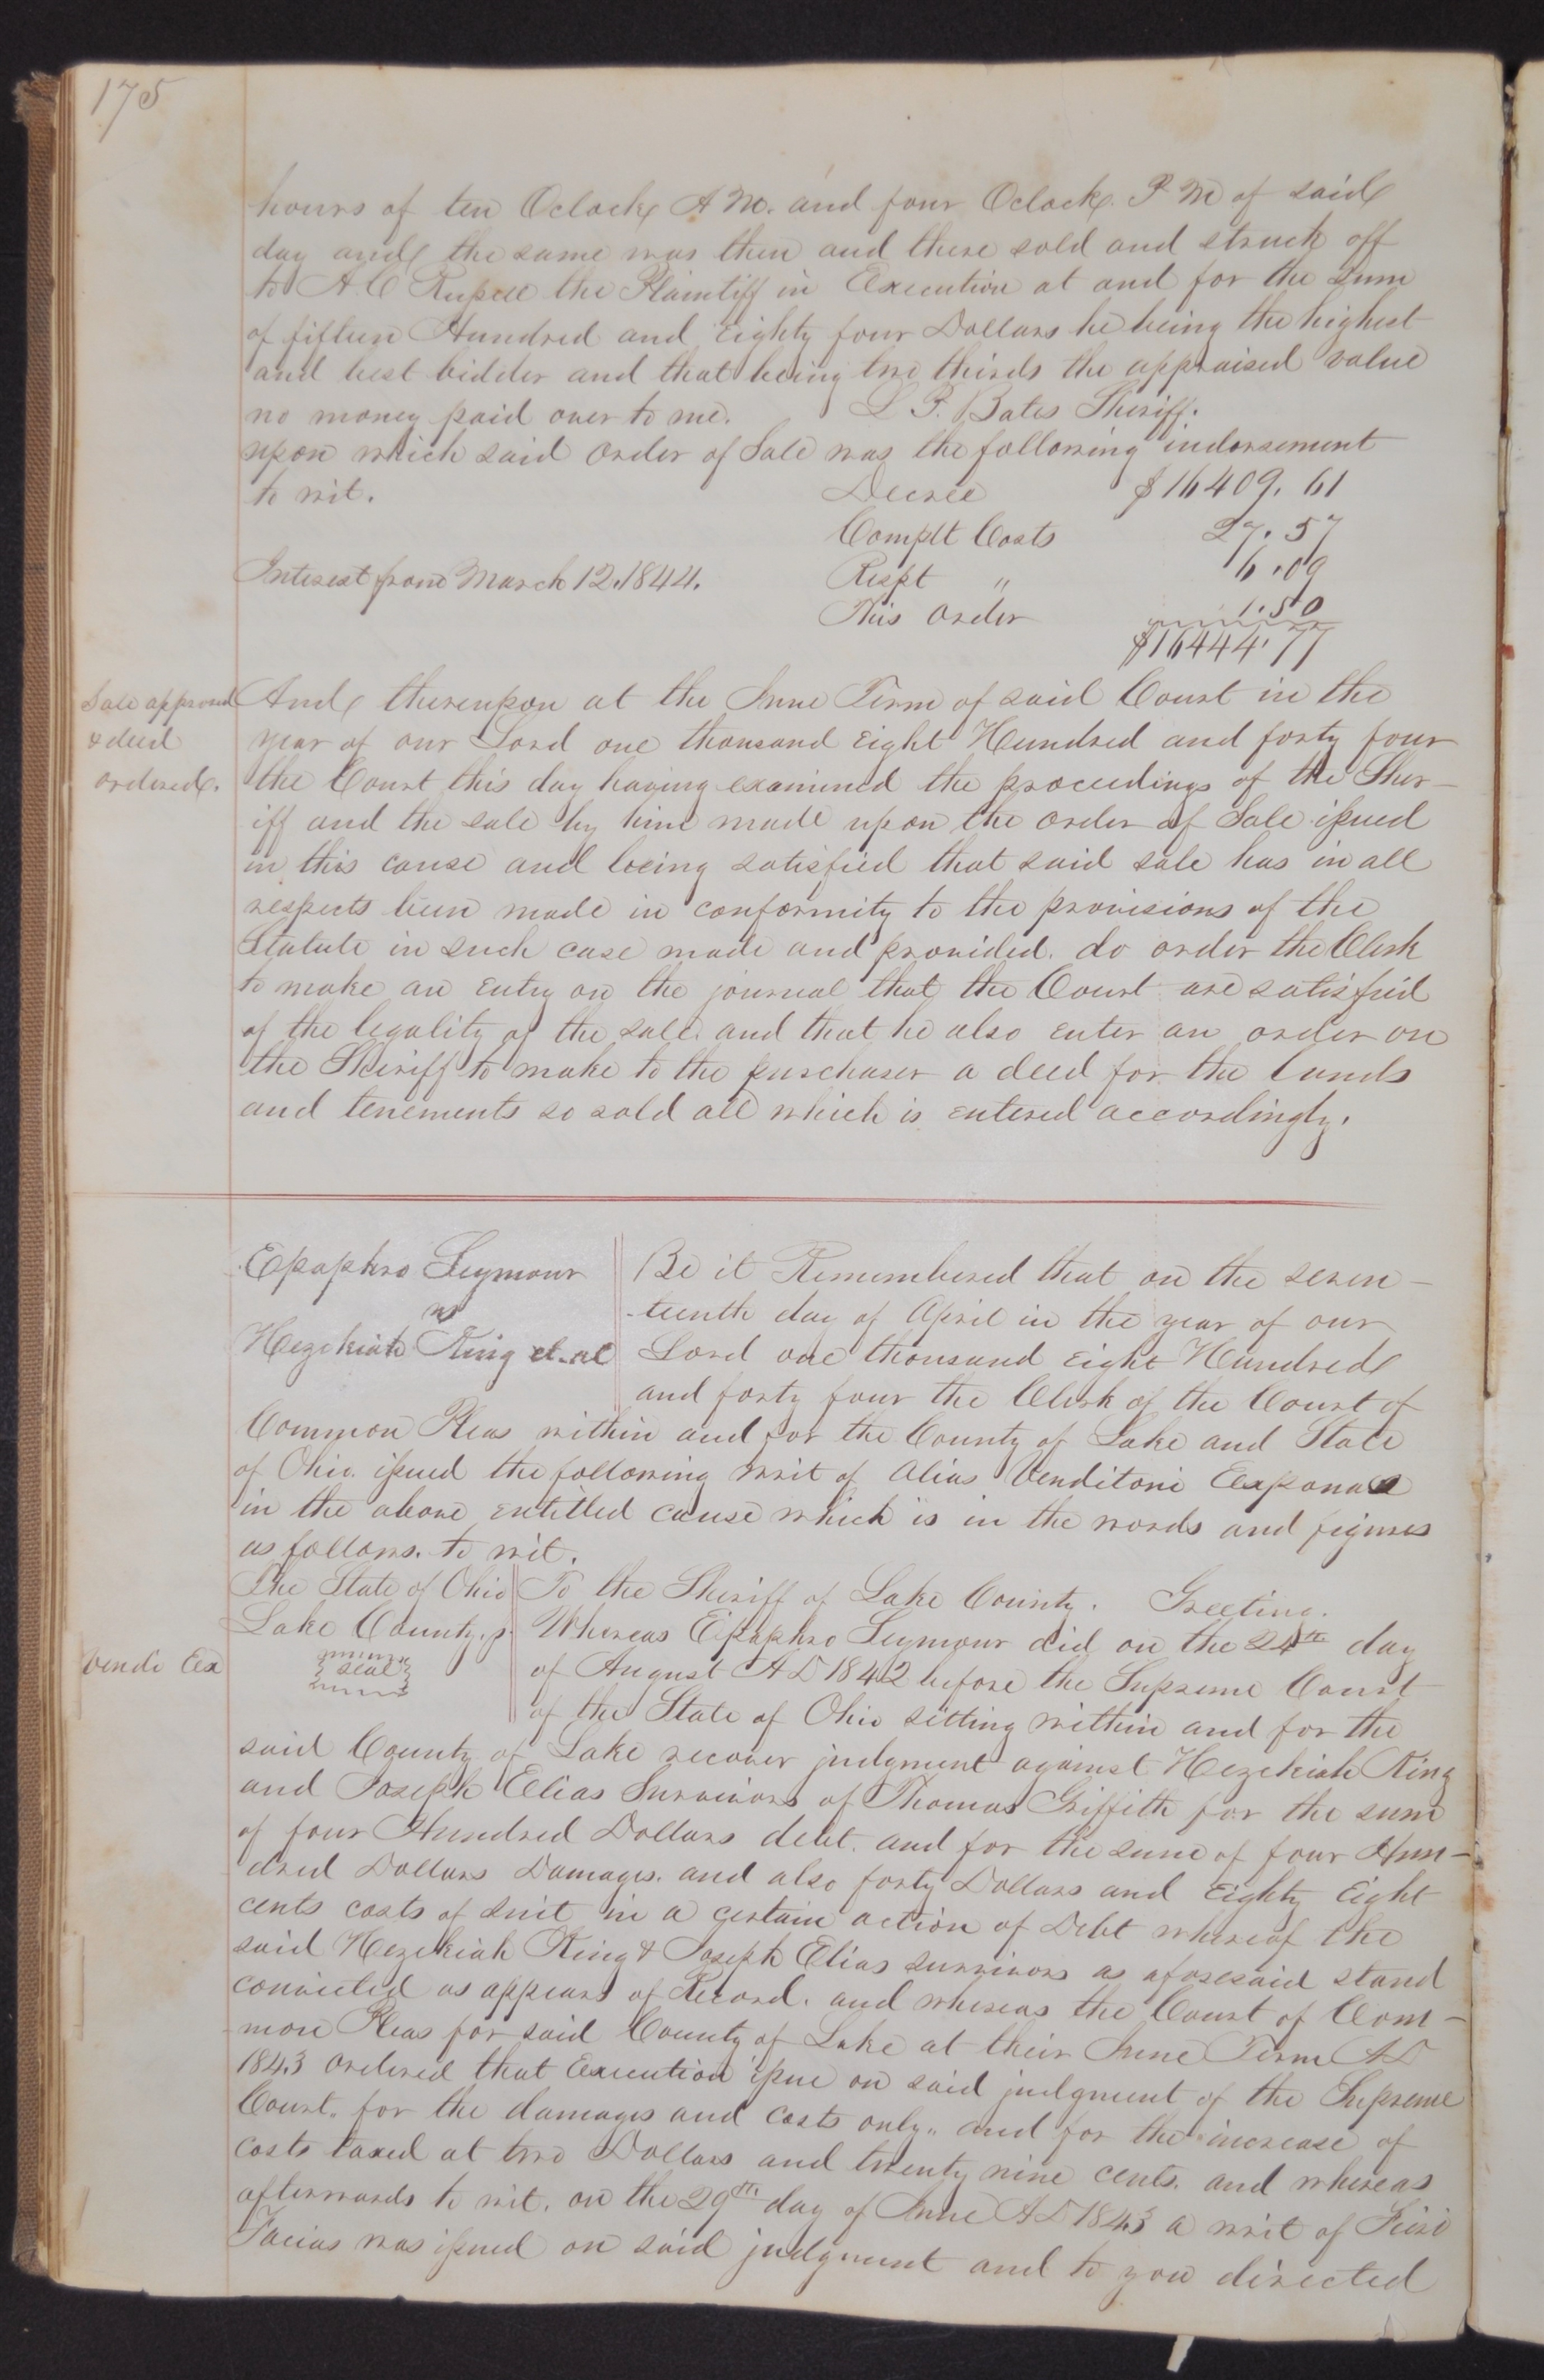 175
hours of ten Oclock A M. and four Oclock. P M of said
day and the same was then and there sold and struck off
to A C Russell the Plaintiff in Execution at and for the sum
of fifteen Hundred and Eighty four Dollars he being the highest
and best bidder and that being two thirds the appraised value
no money paid over to me. L P. Bates Sheriff.
upon which said order of Sale was the following indorsement
to wit. Decree $16409.61
Complt Costs 27.57
Interest from March 12. 1844. Respt " 6.09
This order 1.50
$16444.77
Sale approved
& deed
ordered.
And thereupon at the June Term of said Court in the
year of our Lord one thousand Eight Hundred and forty four
the Court this day having examined the proceedings of the Sher-
iff and the sale by him made upon the order of Sale issued
in this cause and being satisfied that said sale has in all
respects been made in conformity to the provisions of the
Statute in such case made and provided. do order the Clerk
to make an entry on the journal that the Court are satisfied
of the legality of the sale. and that he also enter an order on
the Sheriff to make to the purchaser a deed for the lands
and tenements so sold all which is entered accordingly.
Epaphro Seymour
vs
Hezekiah King et. al
Be it Remembered that on the seven-
-teenth day of April in the year of our
Lord one thousand Eight Hundred
and forty four the Clerk of the Court of
Common Pleas within and for the County of Lake and State
of Ohio. issued the following writ of Alias Venditoni Exponas
in the above entitled cause which is in the words and figures
as follows. to wit.
The State of Ohio
Lake County. s.
seal
Vendi Ex
To the Sheriff of Lake County. Greeting.
Whereas Epaphro Seymour did on the 24th day
of August A D 1842 before the Supreme Court
of the State of Ohio sitting within and for the
said County of Lake recover judgment against Hezekiah King
and Joseph Elias Survivors of Thomas Griffith for the sum
of four Hundred Dollars debt. and for the sum of four Hun-
dred Dollars Damages. and also forty Dollars and Eighty Eight
cents costs of suit in a certain action of Debt whereof the
said Hezekiah King & Joseph Elias survivors as aforesaid stand
convicted as appears of Record. and whereas the Court of Com-
mon Pleas for said County of Lake at their June Term A D
1843 ordered that Execution issue on said judgment of the Supreme
Court. for the damages and costs only. and for the increase of
costs taxed at two Dollars and twenty nine cents. and whereas
afterwards to wit. on the 29th day of June A D 1843 a writ of Fieri
Facias was issued on said judgment and to you directed